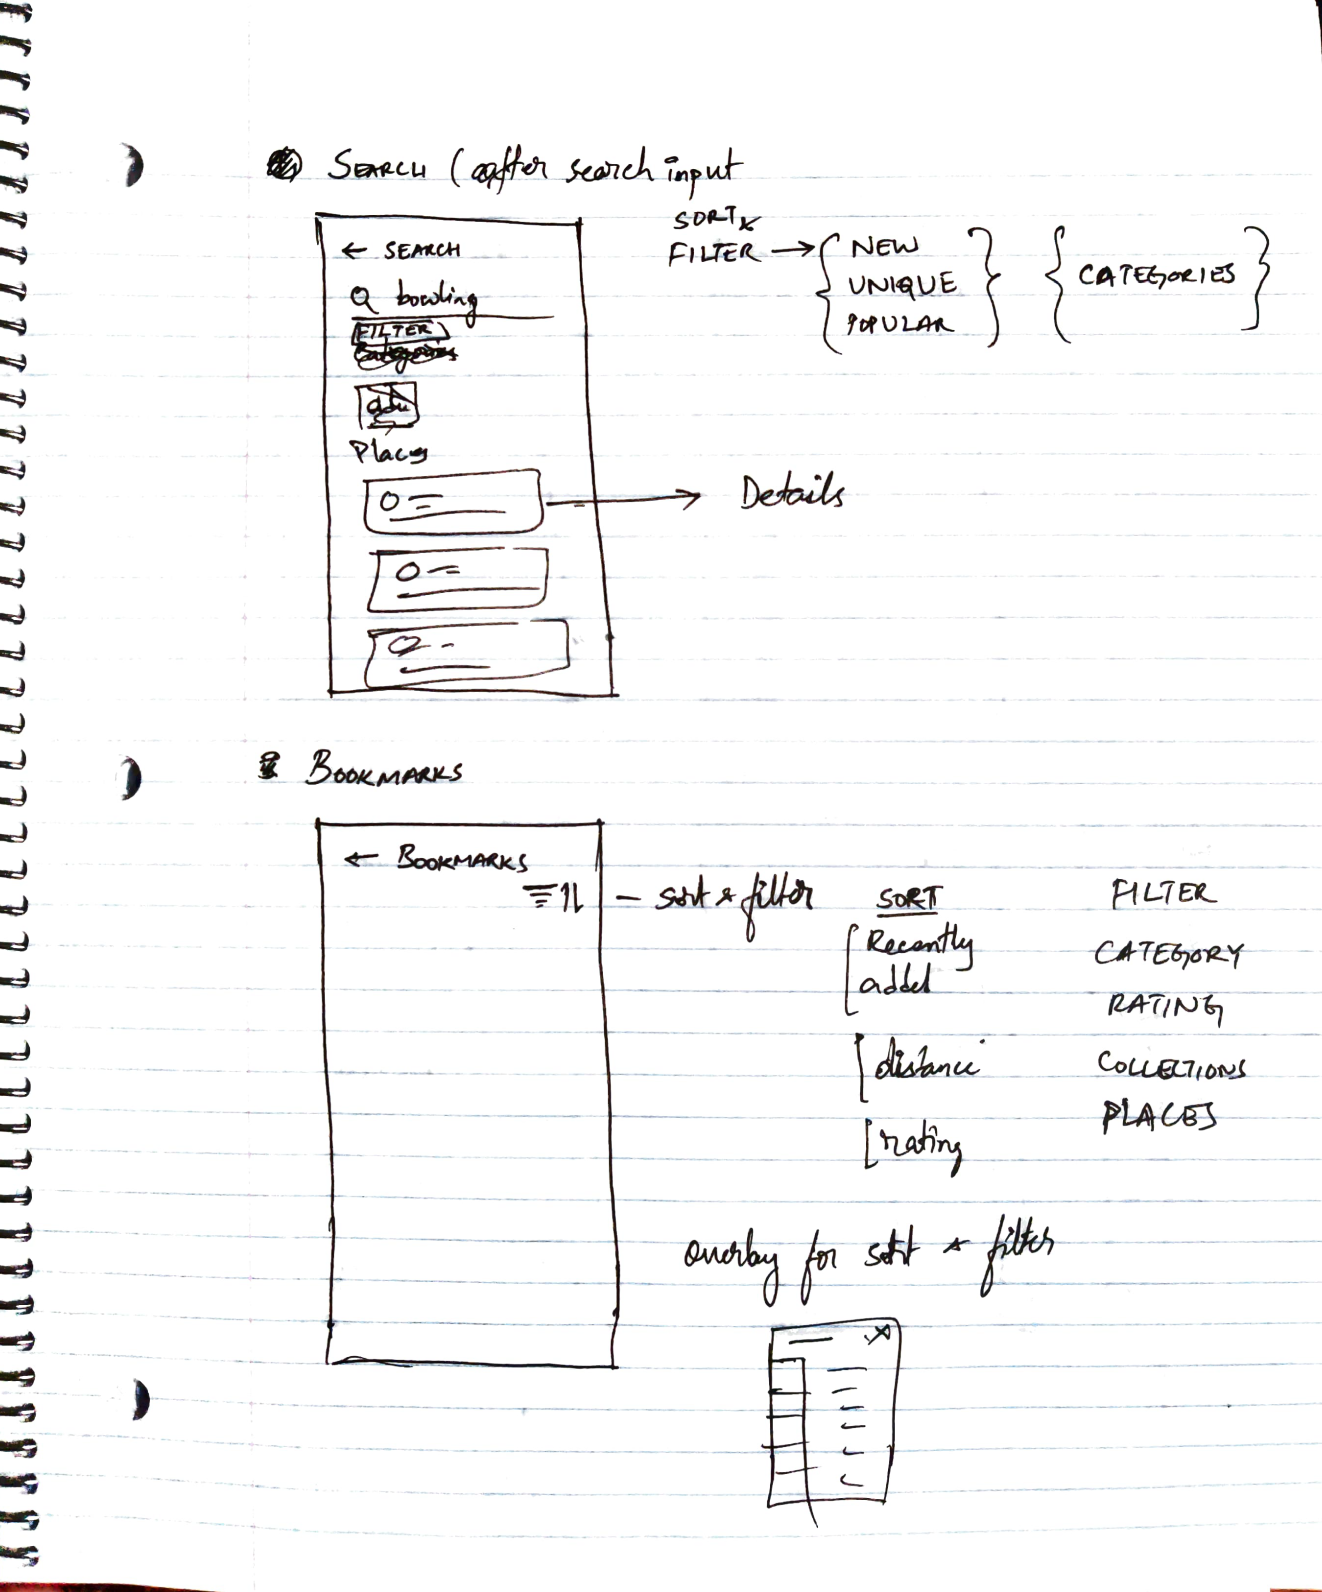 SEARCH (after search input
← SEARCH
bowling
FILTER
Places
SORT &
FILTER → { NEW
UNIQUE
POPULAR } { CATEGORIES }
Details
BOOKMARKS
← BOOKMARKS
- sort & filter
SORT
Recently
added
distance
rating
FILTER
CATEGORY
RATING
COLLECTIONS
PLACES
overlay for sort & filter
X